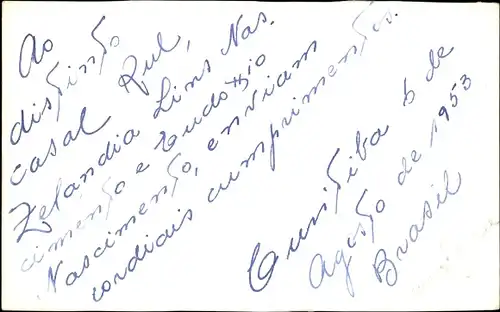 Ao
distinto
casal Rul,
Zelandia Lins Nas-
cimento e Eudoxio
Nascimento, enviam
cordiais cumprimentos.
Curitiba 6 de
Agosto de 1953
Brasil